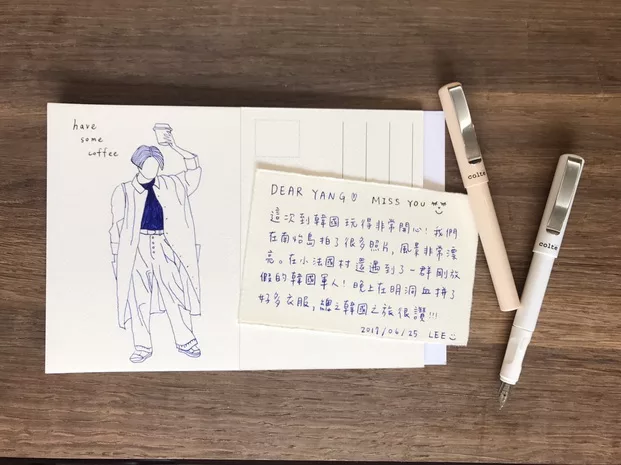 have
some
coffee
DEAR YANG MISS YOU
這次到韓國玩得非常開心！我們
在南怡島拍了很多照片，風景非常漂
亮。在小法國村還遇到了一群剛放
假的韓國軍人！晚上在明洞血拼了
好多衣服，總之韓國之旅很讚!!!
2017/06/25 LEE
colte
colte